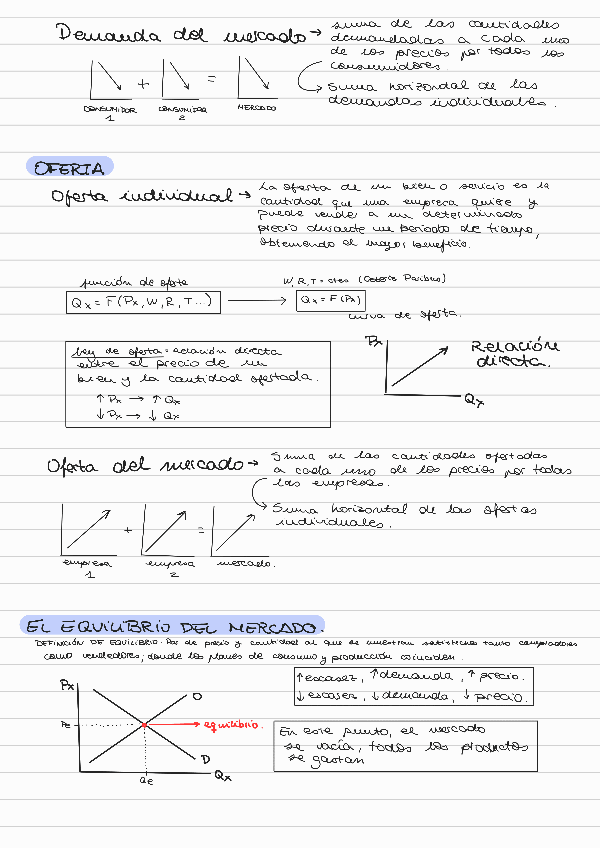 Demanda del mercado → suma de las cantidades
demandadas a cada uno
de los precios por todos los
consumidores.
→ Suma horizontal de las
demandas individuales.
+ =
CONSUMIDOR 1
CONSUMIDOR 2
MERCADO
OFERTA
Oferta individual → La oferta de un bien o servicio es la
cantidad que una empresa quiere y
puede vender a un determinado
precio durante un periodo de tiempo,
obteniendo el mayor beneficio.
función de oferta
W, R, T = ctes (Ceteris Paribus)
Qx = F(Px, W, R, T...) → Qx = F(Px)
curva de oferta.
Ley de oferta = relación directa
entre el precio de un
bien y la cantidad ofertada.
↑ Px → ↑ Qx
↓ Px → ↓ Qx
Px
Qx
Relación
directa.
Oferta del mercado → Suma de las cantidades ofertadas
a cada uno de los precios por todas
las empresas.
→ Suma horizontal de las ofertas
individuales.
+ =
empresa 1
empresa 2
mercado.
EL EQUILIBRIO DEL MERCADO.
DEFINICIÓN DE EQUILIBRIO: Par de precio y cantidad al que se muestran satisfechos tanto compradores
como vendedores, donde los planes de consumo y producción coinciden.
↑ escasez, ↑ demanda, ↑ precio.
↓ escasez, ↓ demanda, ↓ precio.
Px
O
Pe
→ equilibrio.
D
Qe
Qx
En este punto, el mercado
se vacía, todos los productos
se gastan